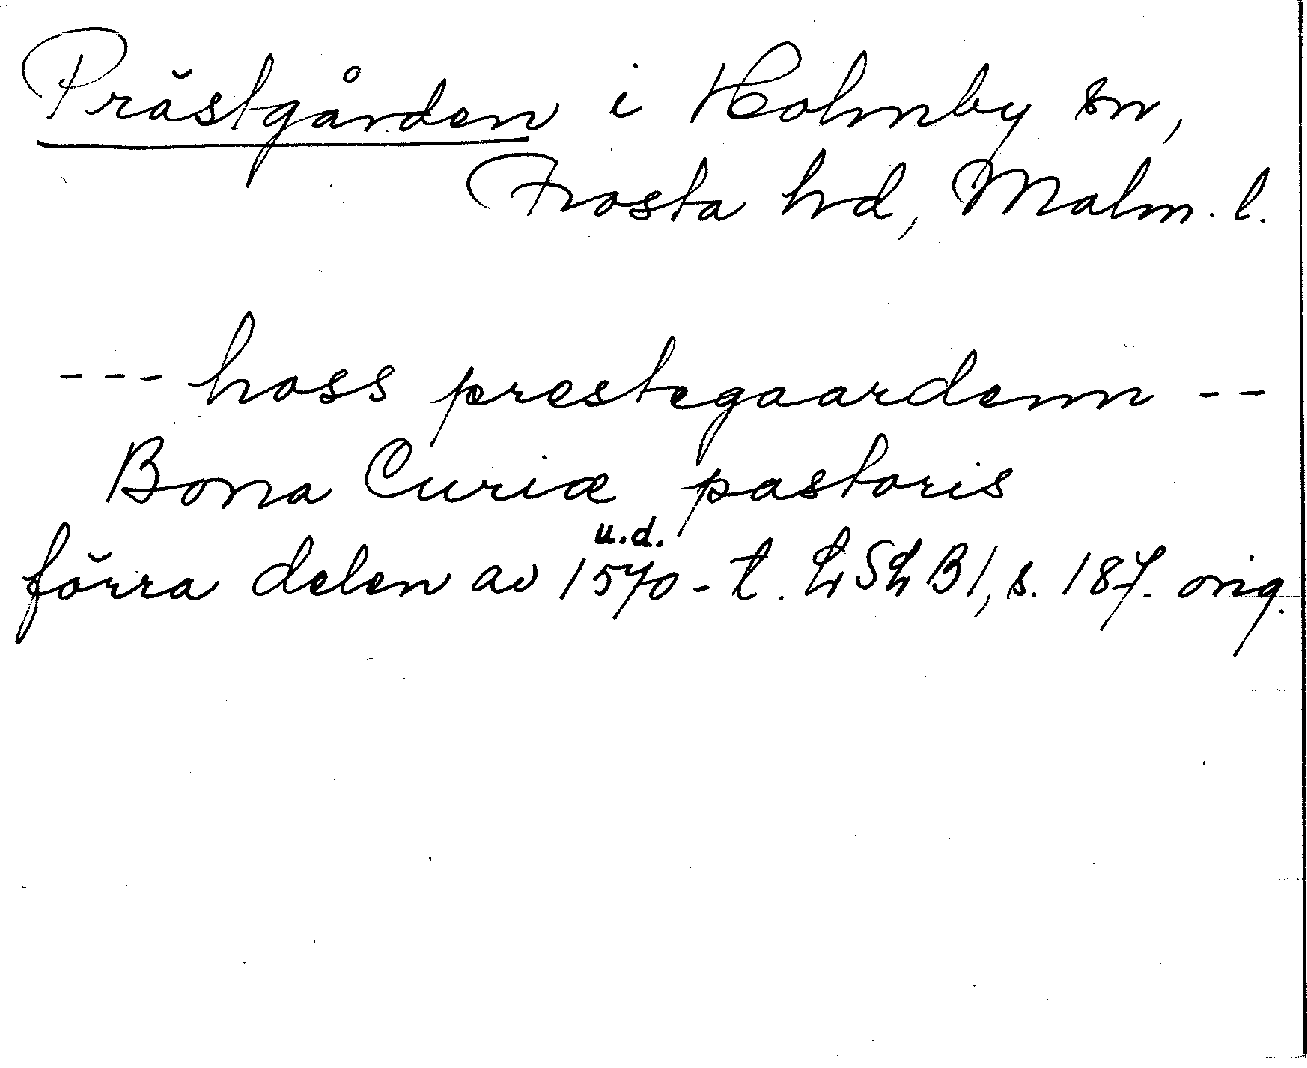 Prästgården i Holmby sn,
Frosta hd, Malm. l.
--- hoss prestegaardenn --
Bona Curiæ pastoris
u.d.
förra delen av 1570-t. LSLB1, s. 187. orig.